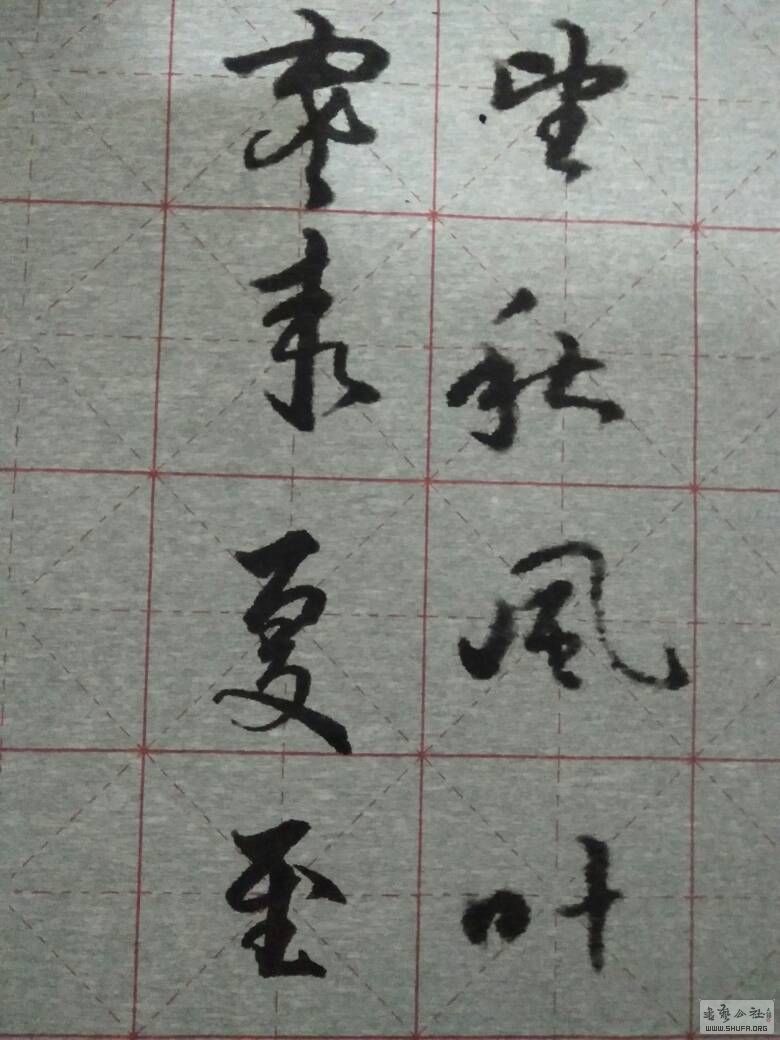 望秋風叶
夏至
书艺公社
WWW.SHUFA.ORG